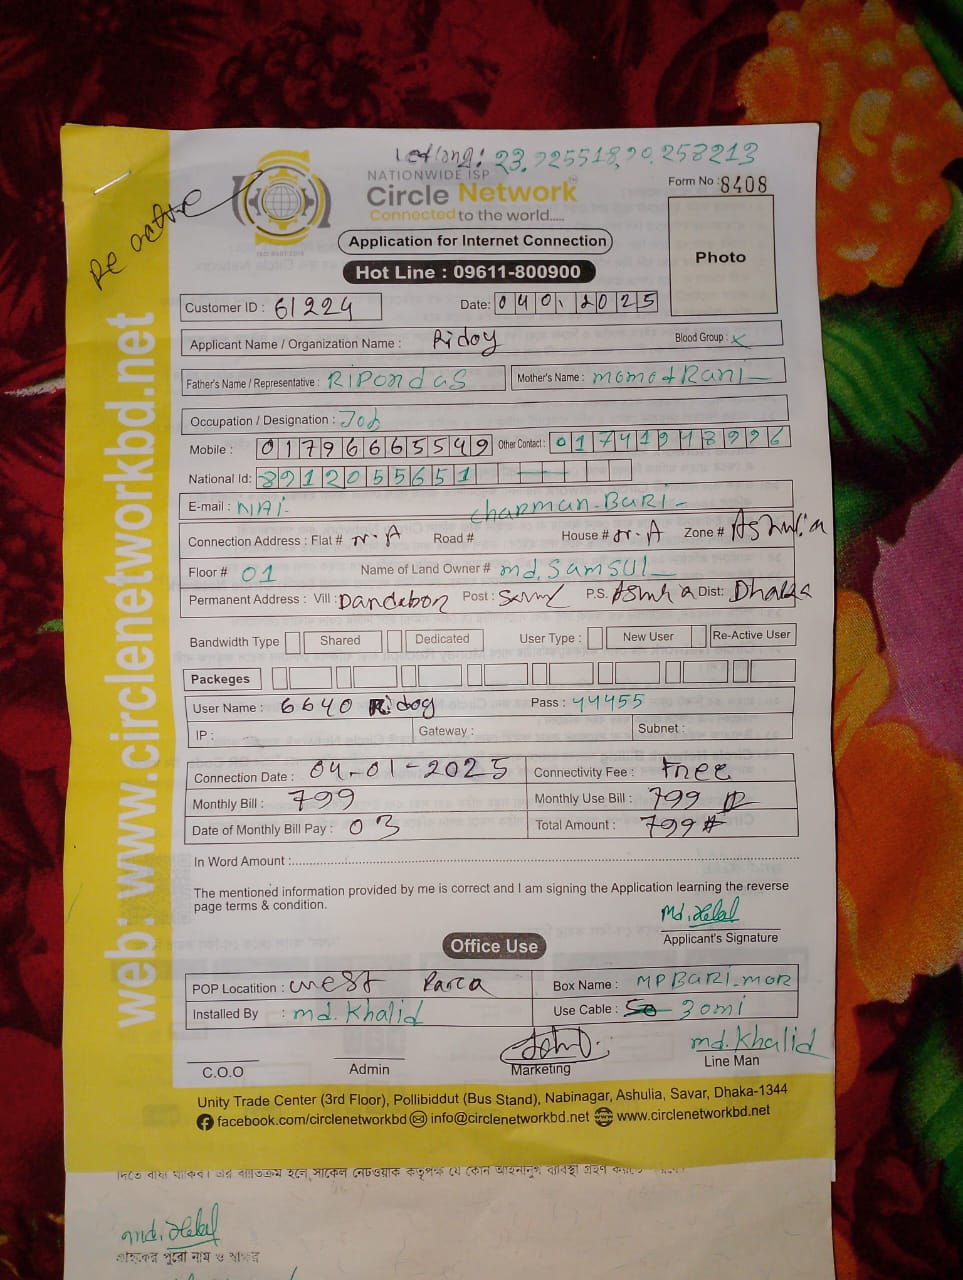 Re active
Let long: 23.925518,90.258213
NATIONWIDE ISP
Circle Network
Connected to the world.....
Form No : 8408
Photo
Application for Internet Connection
Hot Line : 09611-800900
Customer ID : 61224 Date: 040. 2025
Applicant Name / Organization Name : Ridoy Blood Group : x
Father's Name / Representative : Ripon das Mother's Name : momota Rani
Occupation / Designation : Job
Mobile : 01796665549 Other Contact : 01741948996
National Id: 8912055651
E-mail : NAi
chapman-Bari-
Connection Address : Flat # N.A Road # House # N.A Zone # Ashulia
Floor # 01 Name of Land Owner # md. Samsul
Permanent Address : Vill : Dandabor Post : P.S. Dist: Dhaka
Bandwidth Type Shared Dedicated User Type : New User Re-Active User
Packeges
User Name : 6640 Ridoy Pass : 44455
IP : Gateway : Subnet :
Connection Date : 04-01-2025 Connectivity Fee : Free
Monthly Bill : 799 Monthly Use Bill : 799
Date of Monthly Bill Pay : 03 Total Amount : 799 #
In Word Amount :
The mentioned information provided by me is correct and I am signing the Application learning the reverse
page terms & condition.
Md. Helal
Applicant's Signature
Office Use
POP Locatition : West Parca Box Name : MP BARI-MOR
Installed By : md. Khalid Use Cable : 30mi
md. Khalid
C.O.O Admin Marketing Line Man
Unity Trade Center (3rd Floor), Pollibiddut (Bus Stand), Nabinagar, Ashulia, Savar, Dhaka-1344
facebook.com/circlenetworkbd info@circlenetworkbd.net www.circlenetworkbd.net
web: www.circlenetworkbd.net
md. Helal
গ্রাহকের পুরো নাম ও স্বাক্ষর